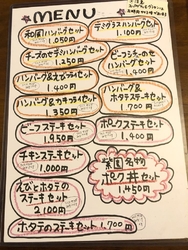 MENU
和風ハンバーグセット
1.050円
デミグラスハンバーグセット
1.100円
チーズのせデミハンバーグセット
1.200円
ビーフシチューのせ
ハンバーグセット
1,400円
ハンバーグ&えびフライセット
1.400円
ハンバーグ&カキフライセット
1.350円
ハンバーグ&
ホタテステーキセット
1.700円
ビーフステーキセット
1,950円
ポークステーキセット
1.400円
チキンステーキセット
1.000円
えびとホタテの
ステーキセット
2.100円
名物
ポーク丼セット
1.450円
ホタテのステーキセット 1.700円